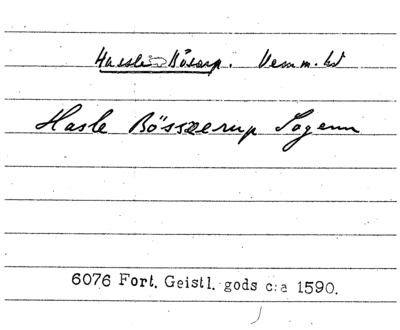 Hassle-Bösarp. Vemm. hd
Hasle Bösszerup Sogenn
6076 Fort. Geistl. gods c:a 1590.